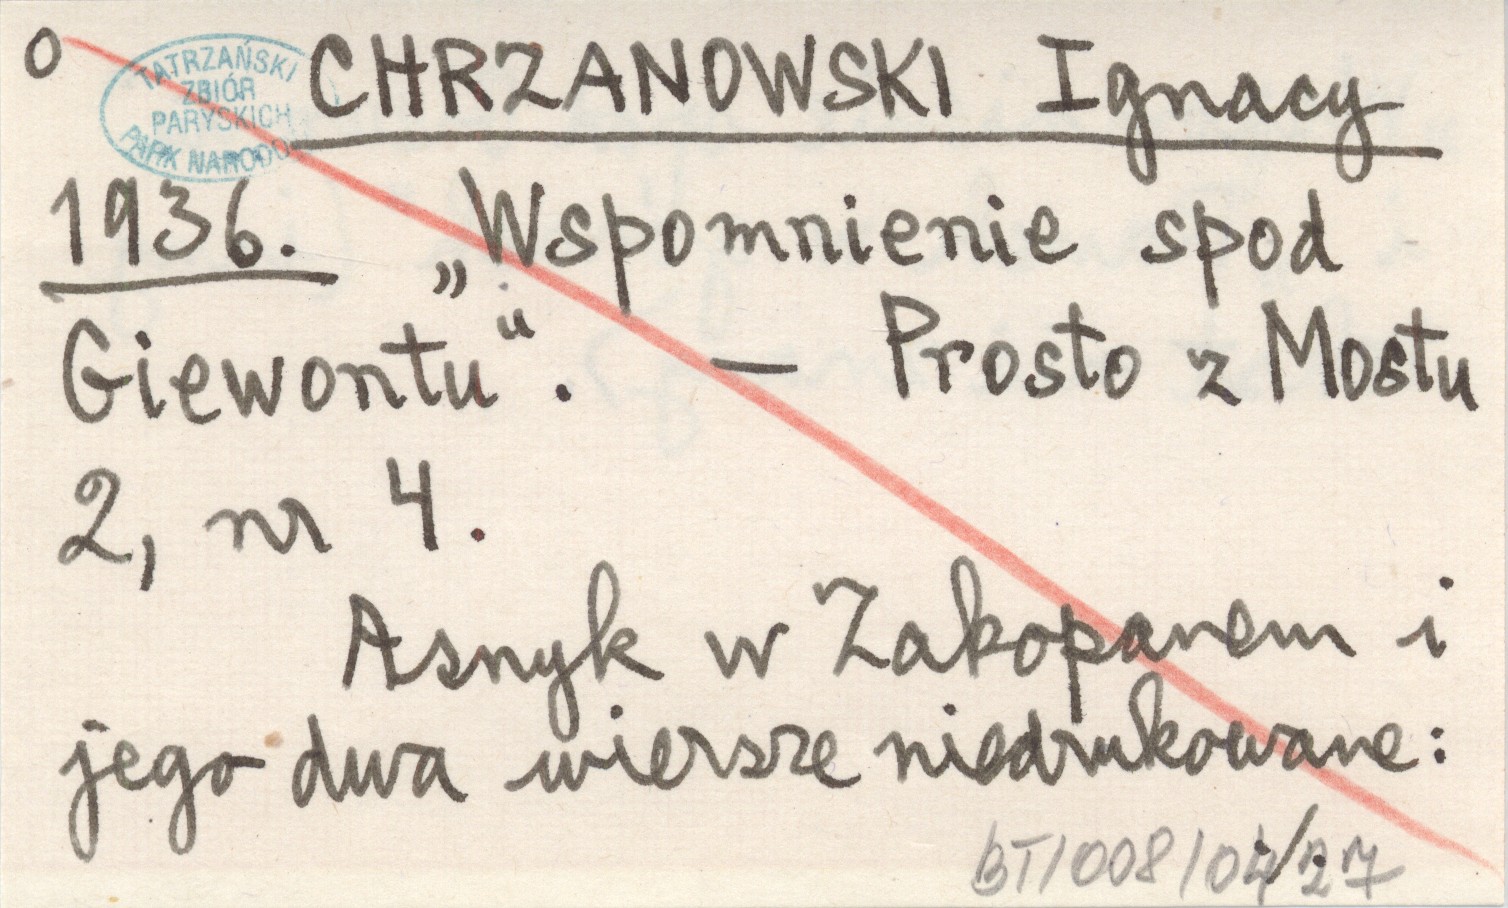 o CHRZANOWSKI Ignacy
TATRZAŃSKI
ZBIÓR
PARYSKICH
PARK NARODO
1936. „Wspomnienie spod
Giewontu“. — Prosto z Mostu
2, nr 4.
Asnyk w Zakopanem i
jego dwa wiersze niedrukowane:
BT/008/04/27